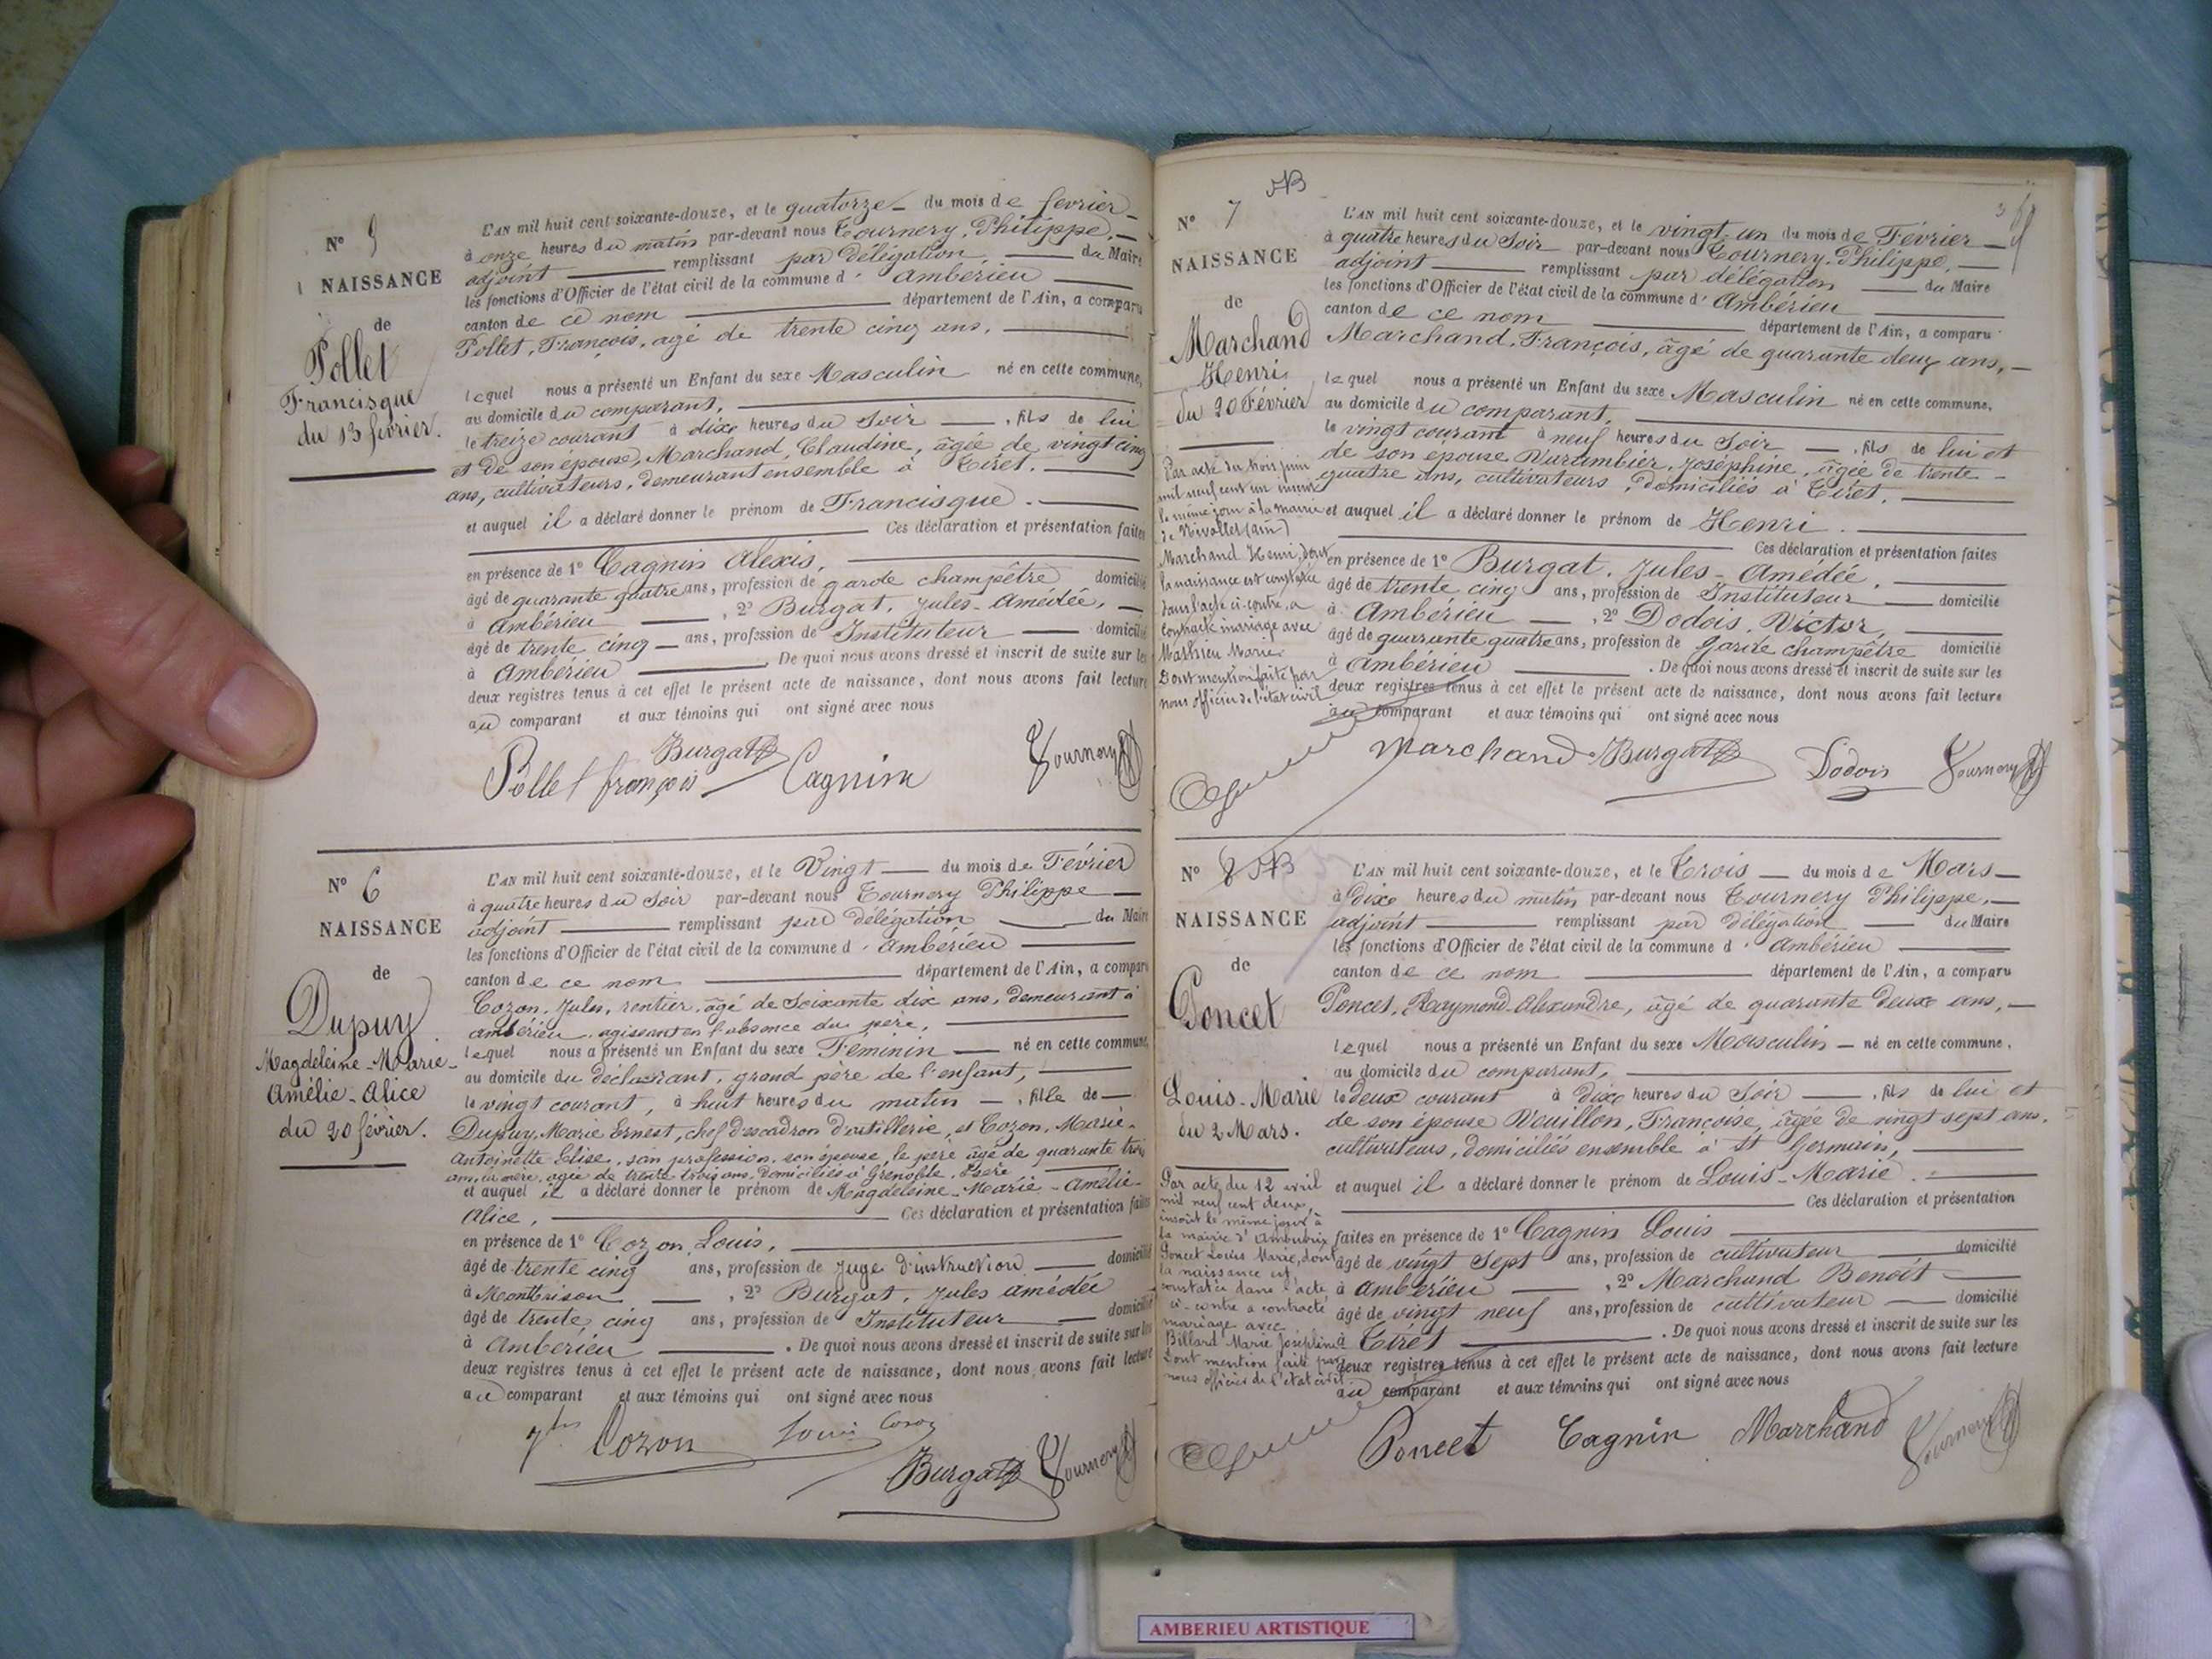 Nº 5
NAISSANCE
de
Pollet
Francisque
du 13 février.
L'AN mil huit cent soixante-douze, et le quatorze du mois de février
à onze heures du matin par-devant nous Tournery, Philippe,
adjoint remplissant par délégation, du Maire
les fonctions d'Officier de l'état civil de la commune d' Ambérieu
canton de ce nom département de l'Ain, a comparu
Pollet, François, agé de trente cinq ans,
lequel nous a présenté un Enfant du sexe Masculin né en cette commune,
au domicile du comparant,
le treize courant à dixe heures du Soir , fils de lui
et de son épouse, Marchand, Claudine, âgée de vingt cinq
ans, cultivateurs, demeurant ensemble à Tiret.
et auquel il a déclaré donner le prénom de Francisque.
Ces déclaration et présentation faites
en présence de 1º Cagnin Alexis,
âgé de quarante quatre ans, profession de garde champêtre domicilié
à Ambérieu , 2º Burgat, Jules-Amédée,
âgé de trente cinq ans, profession de Instituteur domicilié
à Ambérieu . De quoi nous avons dressé et inscrit de suite sur les
deux registres tenus à cet effet le présent acte de naissance, dont nous avons fait lecture
au comparant et aux témoins qui ont signé avec nous
Pollet françois Burgat Cagnin Tournery
Nº 6
NAISSANCE
de
Dupuy
Magdeleine-Marie-
Amélie-Alice
du 20 février.
L'AN mil huit cent soixante-douze, et le Vingt du mois de Février
à quatre heures du Soir par-devant nous Tournery Philippe
adjoint remplissant par délégation du Maire
les fonctions d'Officier de l'état civil de la commune d' Ambérieu
canton de ce nom département de l'Ain, a comparu
Cozon, Jules, rentier, âgé de Soixante dix ans, demeurant à
Ambérieu, agissant en l'absence du père,
lequel nous a présenté un Enfant du sexe Féminin né en cette commune,
au domicile du déclarant, grand père de l'enfant,
le vingt courant, à huit heures du matin , fille de
Dupuy, Marie Ernest, chef d'escadron d'artillerie, et Cozon, Marie-
Antoinette Elise, san profession, son épouse, le père âgé de quarante trois
ans, la mère, agée de trente trois ans, domiciliés à Grenoble, Isère
et auquel il a déclaré donner le prénom de Magdeleine-Marie-Amélie-
Alice, Ces déclaration et présentation faites
en présence de 1º Cozon, Louis,
âgé de trente cinq ans, profession de Juge d'instruction domicilié
à Montbrison , 2º Burgat, Jules amédée
âgé de trente cinq ans, profession de Instituteur domicilié
à Ambérieu . De quoi nous avons dressé et inscrit de suite sur les
deux registres tenus à cet effet le présent acte de naissance, dont nous avons fait lecture
au comparant et aux témoins qui ont signé avec nous
Jles Cozon Louis Cozon
Burgat Tournery
Nº 7
NAISSANCE
de
Marchand
Henri
du 20 Février
Par acte du trois juin
mil neuf cent un inscrit
le même jour à la mairie
de Nivollet (ain)
Marchand Henri, dont
la naissance est constatée
dans l'acte ci-contre, a
contracté mariage avec
Mathieu Marie.
Dont mention faite par
nous officier de l'état civil
L'AN mil huit cent soixante-douze, et le vingt-un du mois de Février
à quatre heures du Soir par-devant nous Tournery, Philippe,
adjoint remplissant par délégation du Maire
les fonctions d'Officier de l'état civil de la commune d' Ambérieu
canton de ce nom département de l'Ain, a comparu
Marchand, François, âgé de quarante deux ans,
lequel nous a présenté un Enfant du sexe Masculin né en cette commune,
au domicile du comparant,
le vingt courant à neuf heures du Soir , fils de lui et
de son épouse Varambier, Joséphine, âgée de trente-
quatre ans, cultivateurs, domiciliés à Tiret,
et auquel il a déclaré donner le prénom de Henri.
Ces déclaration et présentation faites
en présence de 1º Burgat, Jules-Amédée,
âgé de trente cinq ans, profession de Instituteur domicilié
à Ambérieu , 2º Dodois, Victor,
âgé de quarante quatre ans, profession de garde champêtre domicilié
à Ambérieu . De quoi nous avons dressé et inscrit de suite sur les
deux registres tenus à cet effet le présent acte de naissance, dont nous avons fait lecture
au comparant et aux témoins qui ont signé avec nous
Marchand Burgat Dodois Tournery
Nº 8
NAISSANCE
de
Poncet
Louis-Marie
du 2 Mars.
Par acte du 12 avril
mil neuf cent deux,
inscrit le même jour à
la mairie d'Ambutrix
Poncet Louis Marie, dont
la naissance est
constatée dans l'acte
ci-contre a contracté
mariage avec
Billard Marie Joséphine
Dont mention faite par
nous officier de l'état civil
L'AN mil huit cent soixante-douze, et le Trois du mois de Mars
à Dixe heures du matin par-devant nous Tournery Philippe,
adjoint remplissant par délégation du Maire
les fonctions d'Officier de l'état civil de la commune d' Ambérieu
canton de ce nom département de l'Ain, a comparu
Poncet, Raymond-Alexandre, âgé de quarante deux ans,
lequel nous a présenté un Enfant du sexe Masculin né en cette commune,
au domicile du comparant,
le deux courant à dixe heures du Soir , fils de lui et
de son épouse Veuillon, Françoise, âgée de vingt sept ans,
cultivateurs, domiciliés ensemble à St Germain,
et auquel il a déclaré donner le prénom de Louis-Marie.
Ces déclaration et présentation
faites en présence de 1º Cagnin Louis
âgé de vingt Sept ans, profession de cultivateur domicilié
à Ambérieu , 2º Marchand Benoît
âgé de vingt neuf ans, profession de cultivateur domicilié
à Tiret . De quoi nous avons dressé et inscrit de suite sur les
deux registres tenus à cet effet le présent acte de naissance, dont nous avons fait lecture
au comparant et aux témoins qui ont signé avec nous
Poncet Cagnin Marchand Tournery
AMBERIEU ARTISTIQUE